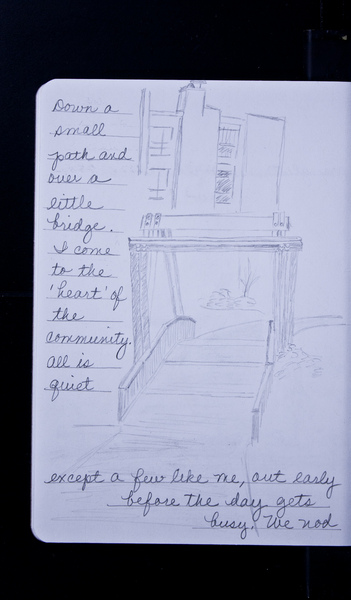 Down a
small
path and
over a
little
bridge.
I come
to the
'heart' of
the
community.
All is
quiet
except a few like me, out early
before the day gets
busy. We nod